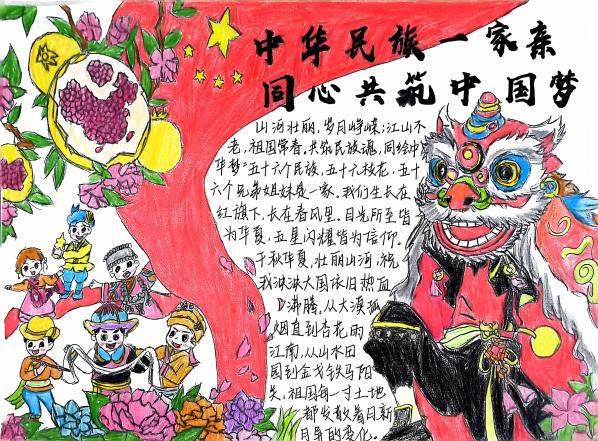 中华民族一家亲
同心共筑中国梦
山河壮丽,岁月峥嵘;江山不
老,祖国常春,共筑民族魂,同绘中
华梦"五十六个民族,五十六枝花,五十
六个兄弟姐妹是一家,我们生长在
红旗下,长在春风里。目光所至皆
为华夏,五星闪耀皆为信仰。
千秋华夏,壮丽山河,
我泱泱大国依旧热血
沸腾,从大漠孤
烟直到杏花雨
江南,从山水田
园到金戈铁马阳
关,祖国每一寸土地
都发散着日新
月异的变化。